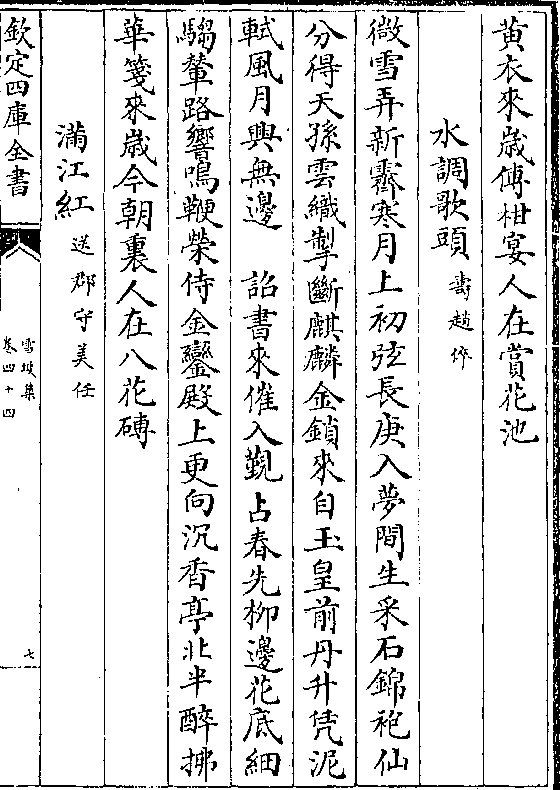 黄衣來歲傳柑宴人在賞花池
水調歌頭 壽趙倅
微雪弄新霽寒月上初弦長庚入夢間生采石錦袍仙
分得天孫雲織掣斷麒麟金鎖來自玉皇前丹升凭泥
軾風月興無邊 詔書來催入覲占春先栁邊花底細
騶輦路響鳴鞭榮侍金鑾殿上更向沉香亭北半醉拂
華箋來歲今朝裏人在八花磚
滿江紅 送郡守美任
欽定四庫全書
雪坡集
卷四十四
七